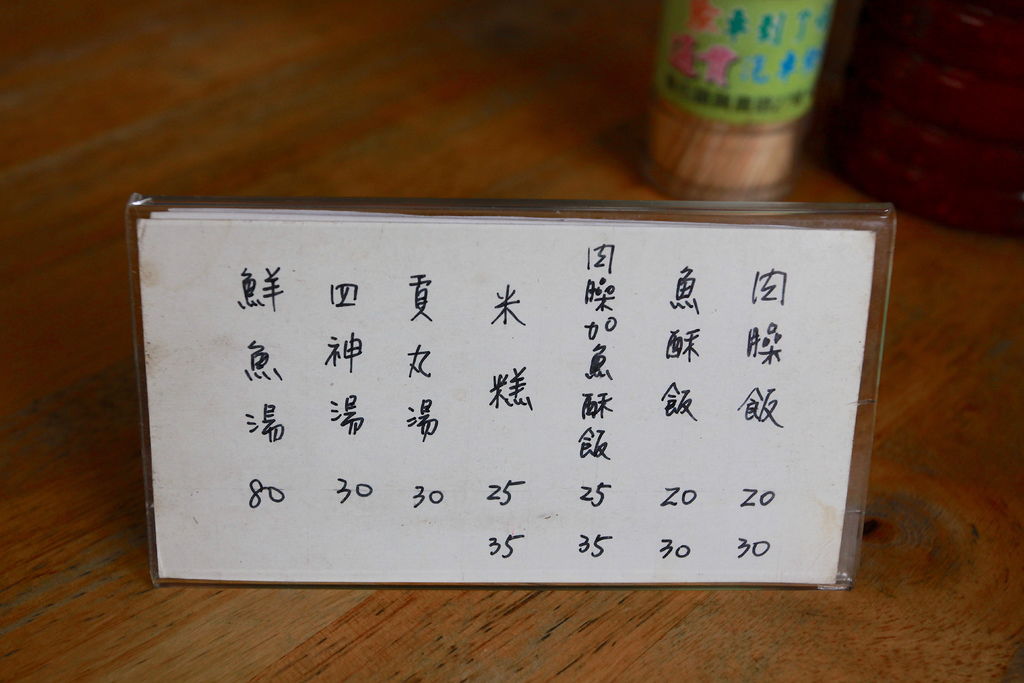 肉臊飯 20 30
魚酥飯 20 30
肉臊加魚酥飯 25 35
米糕 25 35
貢丸湯 30
四神湯 30
鮮魚湯 80